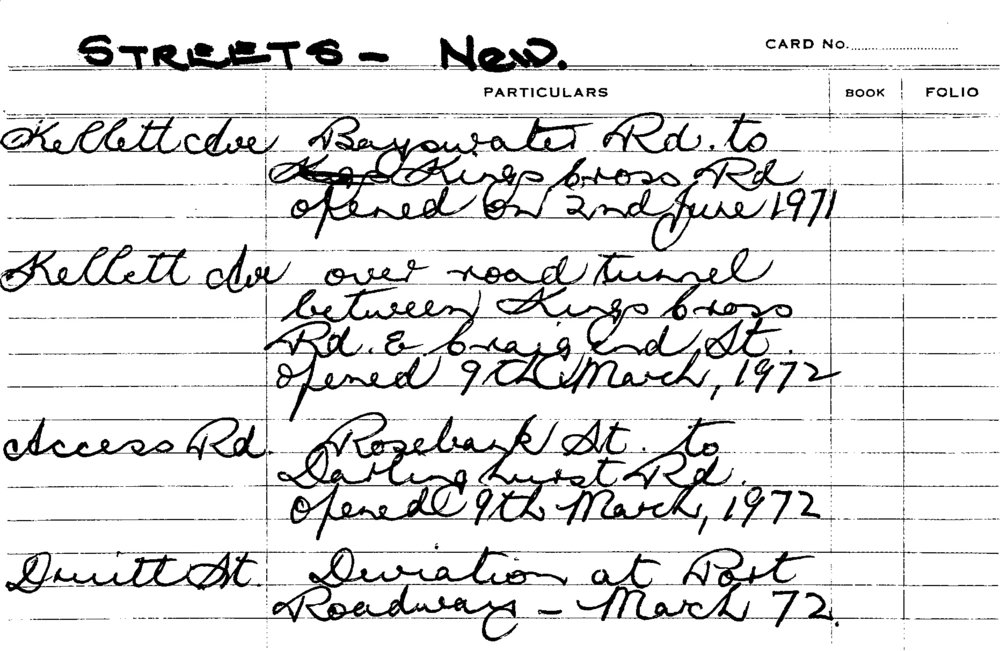 STREETS - New.
CARD No.
PARTICULARS BOOK FOLIO
Kellett Ave Bayswater Rd. to
Kings Cross Rd
opened on 2nd June 1971
Kellett Ave over road tunnel
between Kings Cross
Rd. & Craig End St.
opened 9th March, 1972
Access Rd. Rosebank St. to
Darlinghurst Rd.
opened 9th March, 1972
Druitt St. Deviation at Port
Roadway - March 72.